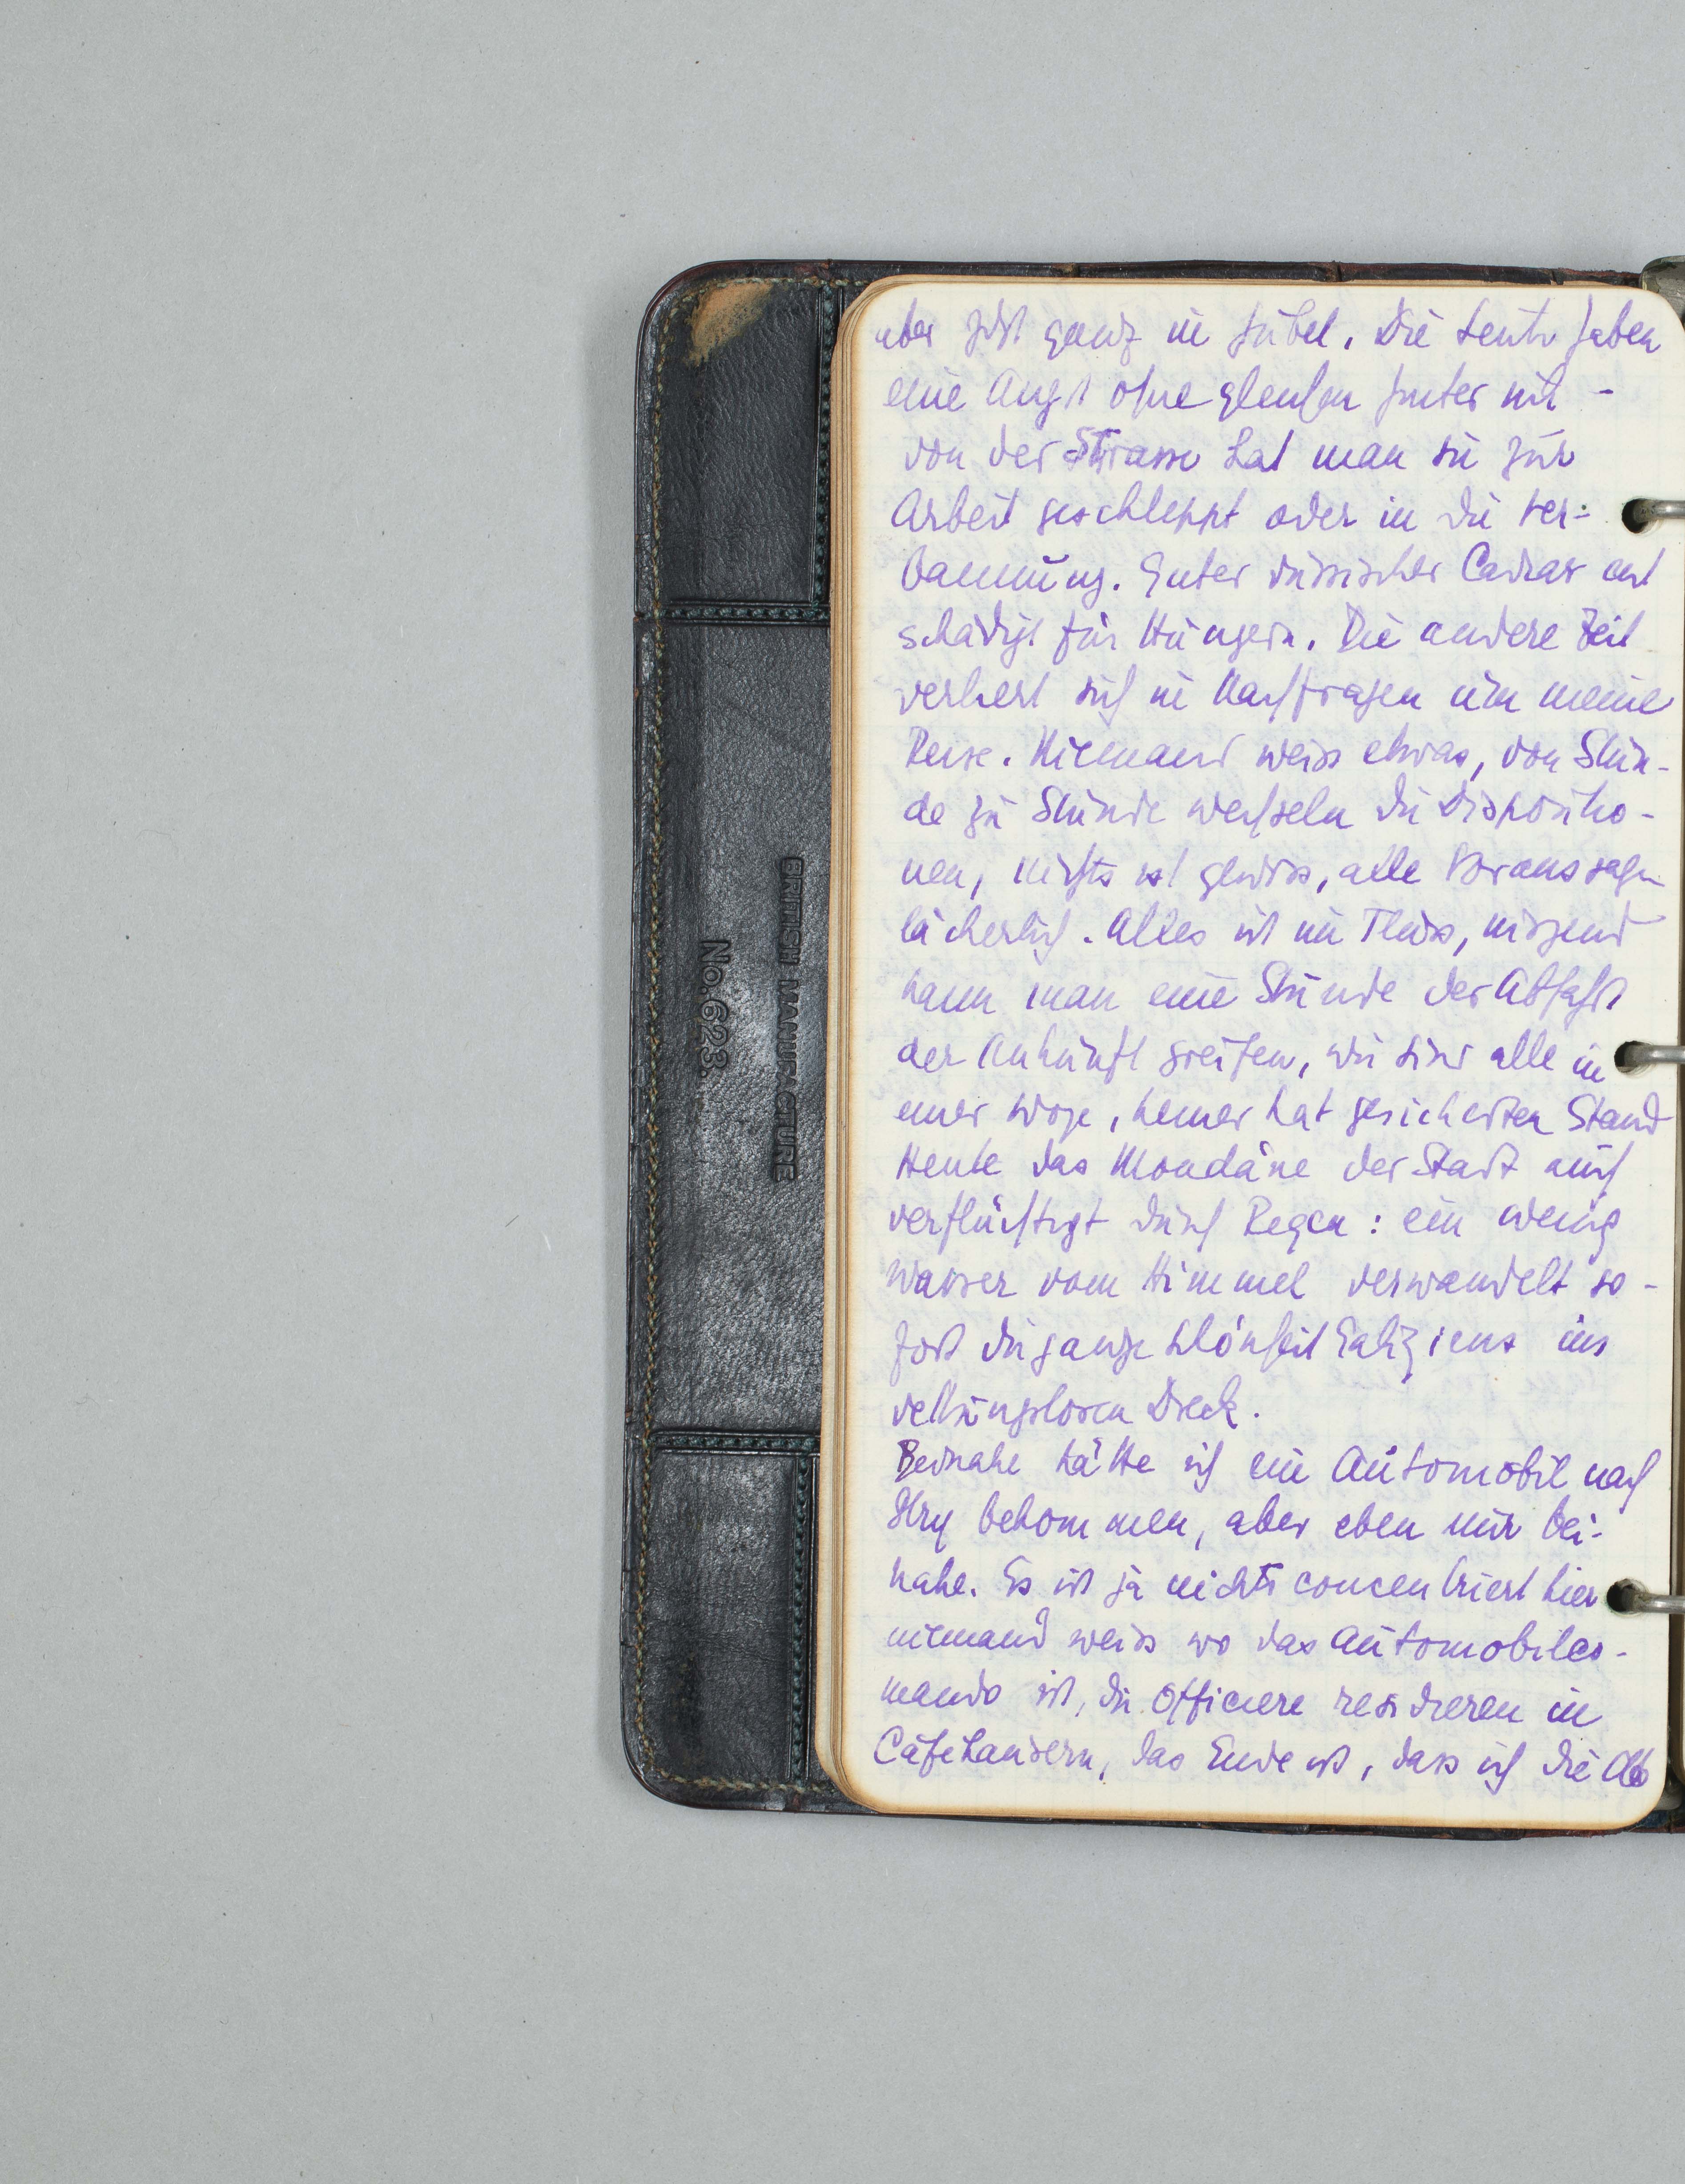 BRITISH MANUFACTURE
No. 623.
aber jetzt ganz in Jubel. Die Leute haben
eine Angst ohne gleichen hinter sich -
von der Strasse hat man sie zur
Arbeit geschleppt oder in die Ver-
bannung. Guter russischer Caviar ent
schädigt für Hungern. Die andere Zeit
verliert sich in Nachfragen um meine
Reise. Niemand weiss etwas, von Stun-
de zu Stunde wechseln die Dispositio-
nen, nichts ist gewiss, alle Voraussagen
lächerlich. Alles ist im Fluss, nirgend
kann man eine Stunde der Abfahrt
der Ankunft greifen, wir sind alle in
einer Woge, keiner hat gesicherten Stand
Heute das Mondäne der Stadt auch
verflüchtigt durch Regen: ein wenig
Wasser vom Himmel verwandelt so-
fort die ganze Schönheit Galiziens ins
rettungslosen Dreck.
Beinahe hätte ich ein Automobil nach
Stry bekommen, aber eben nur bei-
nahe. Es ist ja nichts concentriert hier
niemand weiss wo das Automobilco-
mando ist, die Officiere residieren in
Caféhäusern, das Ende ist, dass ich die Ab